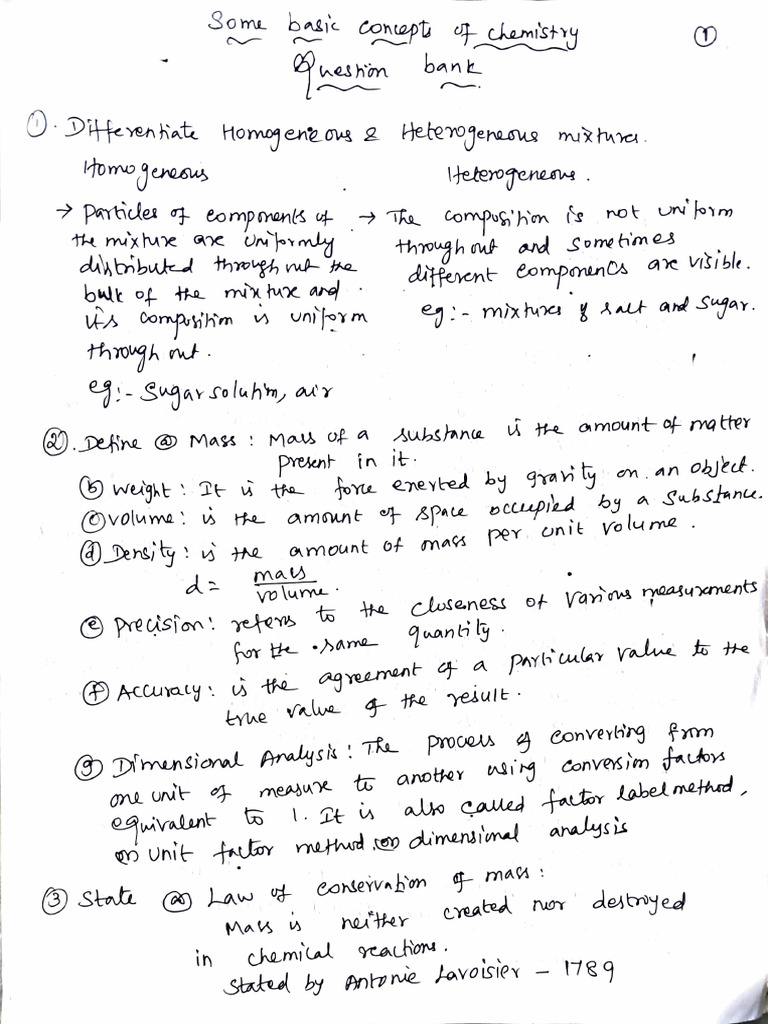 Some basic concepts of chemistry
①
Question bank
①. Differentiate Homogeneous & Heterogeneous mixtures.
Homogeneous
Heterogeneous.
→ Particles of components of
the mixture are uniformly
distributed through out the
bulk of the mixture and
its composition is uniform
through out.
eg:- Sugar solution, air
→ The composition is not uniform
through out and sometimes
different components are visible.
eg:- mixtures of salt and sugar.
②. Define ⓐ Mass: Mass of a substance is the amount of matter
present in it.
ⓑ weight: It is the force exerted by gravity on an object.
ⓒ volume: is the amount of space occupied by a substance.
ⓓ Density: is the amount of mass per unit volume.
d = mass
volume.
ⓔ Precision: refers to the closeness of various measurements
for the same quantity.
ⓕ Accuracy: is the agreement of a particular value to the
true value of the result.
ⓖ Dimensional Analysis: The process of converting from
one unit of measure to another using conversion factors
equivalent to 1. It is also called factor label method,
or unit factor method or dimensional analysis
③ State ⓐ Law of conservation of mass:
Mass is neither created nor destroyed
in chemical reactions.
Stated by Antonie Lavoisier - 1789